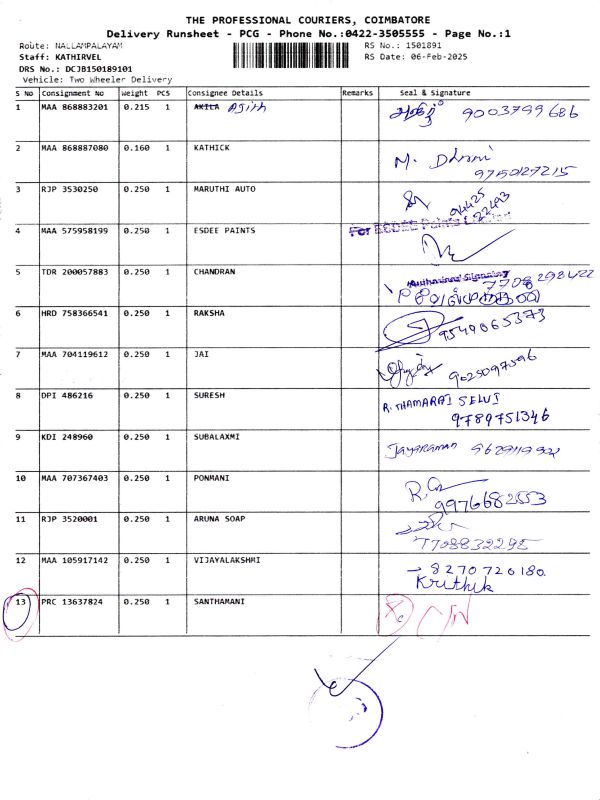 THE PROFESSIONAL COURIERS, COIMBATORE
Delivery Runsheet - PCG - Phone No.:0422-3505555 - Page No.:1
Route: NALLAMPALAYAM
RS No.: 1501891
Staff: KATHIRVEL
RS Date: 06-Feb-2025
DRS No.: DCJB150189101
Vehicle: Two Wheeler Delivery
S No Consignment No Weight PCS Consignee Details Remarks Seal & Signature
1 MAA 868883201 0.215 1 AKILA Ajith 9003799686
2 MAA 868887080 0.160 1 KATHICK M. Dhami
9750127215
3 RJP 3530250 0.250 1 MARUTHI AUTO 94425
22493
4 MAA 575958199 0.250 1 ESDEE PAINTS For ESDEE Paints Limited
5 TDR 200057883 0.250 1 CHANDRAN Authorised Signatory
7708298422
6 HRD 758366541 0.250 1 RAKSHA 9549065373
7 MAA 704119612 0.250 1 JAI 9025097596
8 DPI 486216 0.250 1 SURESH R. THAMARAI SELVI
9789751346
9 KDI 248960 0.250 1 SUBALAXMI Jayaraman
10 MAA 707367403 0.250 1 PONMANI
9976682553
11 RJP 3520001 0.250 1 ARUNA SOAP
7708832295
12 MAA 105917142 0.250 1 VIJAYALAKSHMI 8270720180
Kruthik
13 PRC 13637824 0.250 1 SANTHAMANI